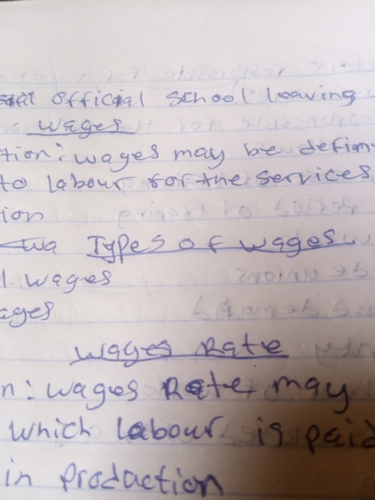 official school leaving
wages
tion: wages may be defin
to labour for the services
ion
Types of wages.
l wages
ages
wages Rate
n: wages Rate may
which labour is paid
in production